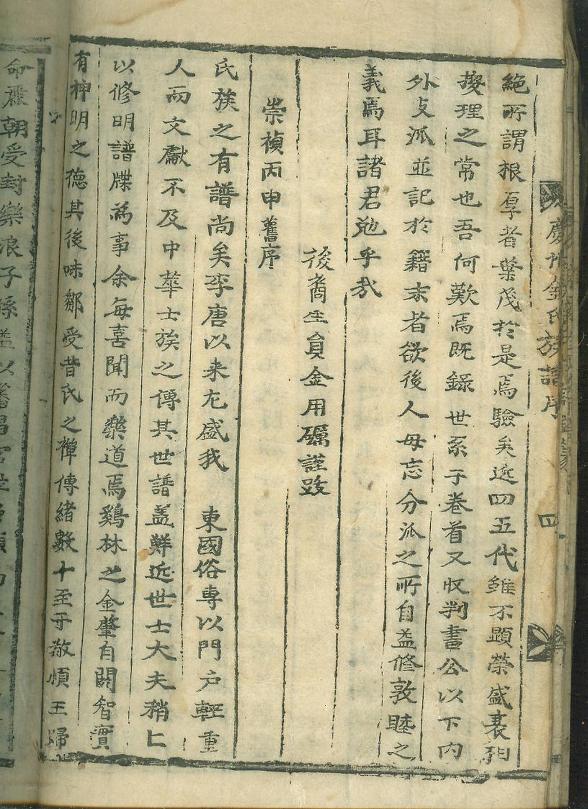 慶州金氏族譜序
四
絶所謂根厚者榮茂於是焉驗矣近四五代雖不顯榮盛衰相
換理之常也吾何歎焉既錄世系于卷首又収判書公以下內
外支派並記於籍末者欲後人毋忘分派之所自益修敦睦之
義焉耳諸君勉乎哉
後裔生員金用礪謹跋
崇禎丙申舊序
氏族之有譜尚矣李唐以来尤盛我 東國俗專以門戶輕重
人而文獻不及中華士族之傳其世譜盖鮮近世士大夫稍
以修明譜牒為事余每喜聞而樂道焉鷄林之金肇自閼智實
有神明之德其後味鄒受昔氏之禪傳緒數十至于敬順王歸
命麗朝受封樂浪子孫